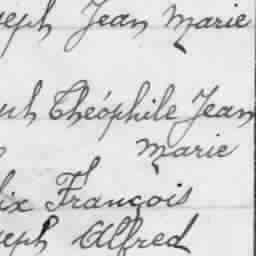 seph Jean Marie
eph Théophile Jean
Marie
lix François
seph Alfred